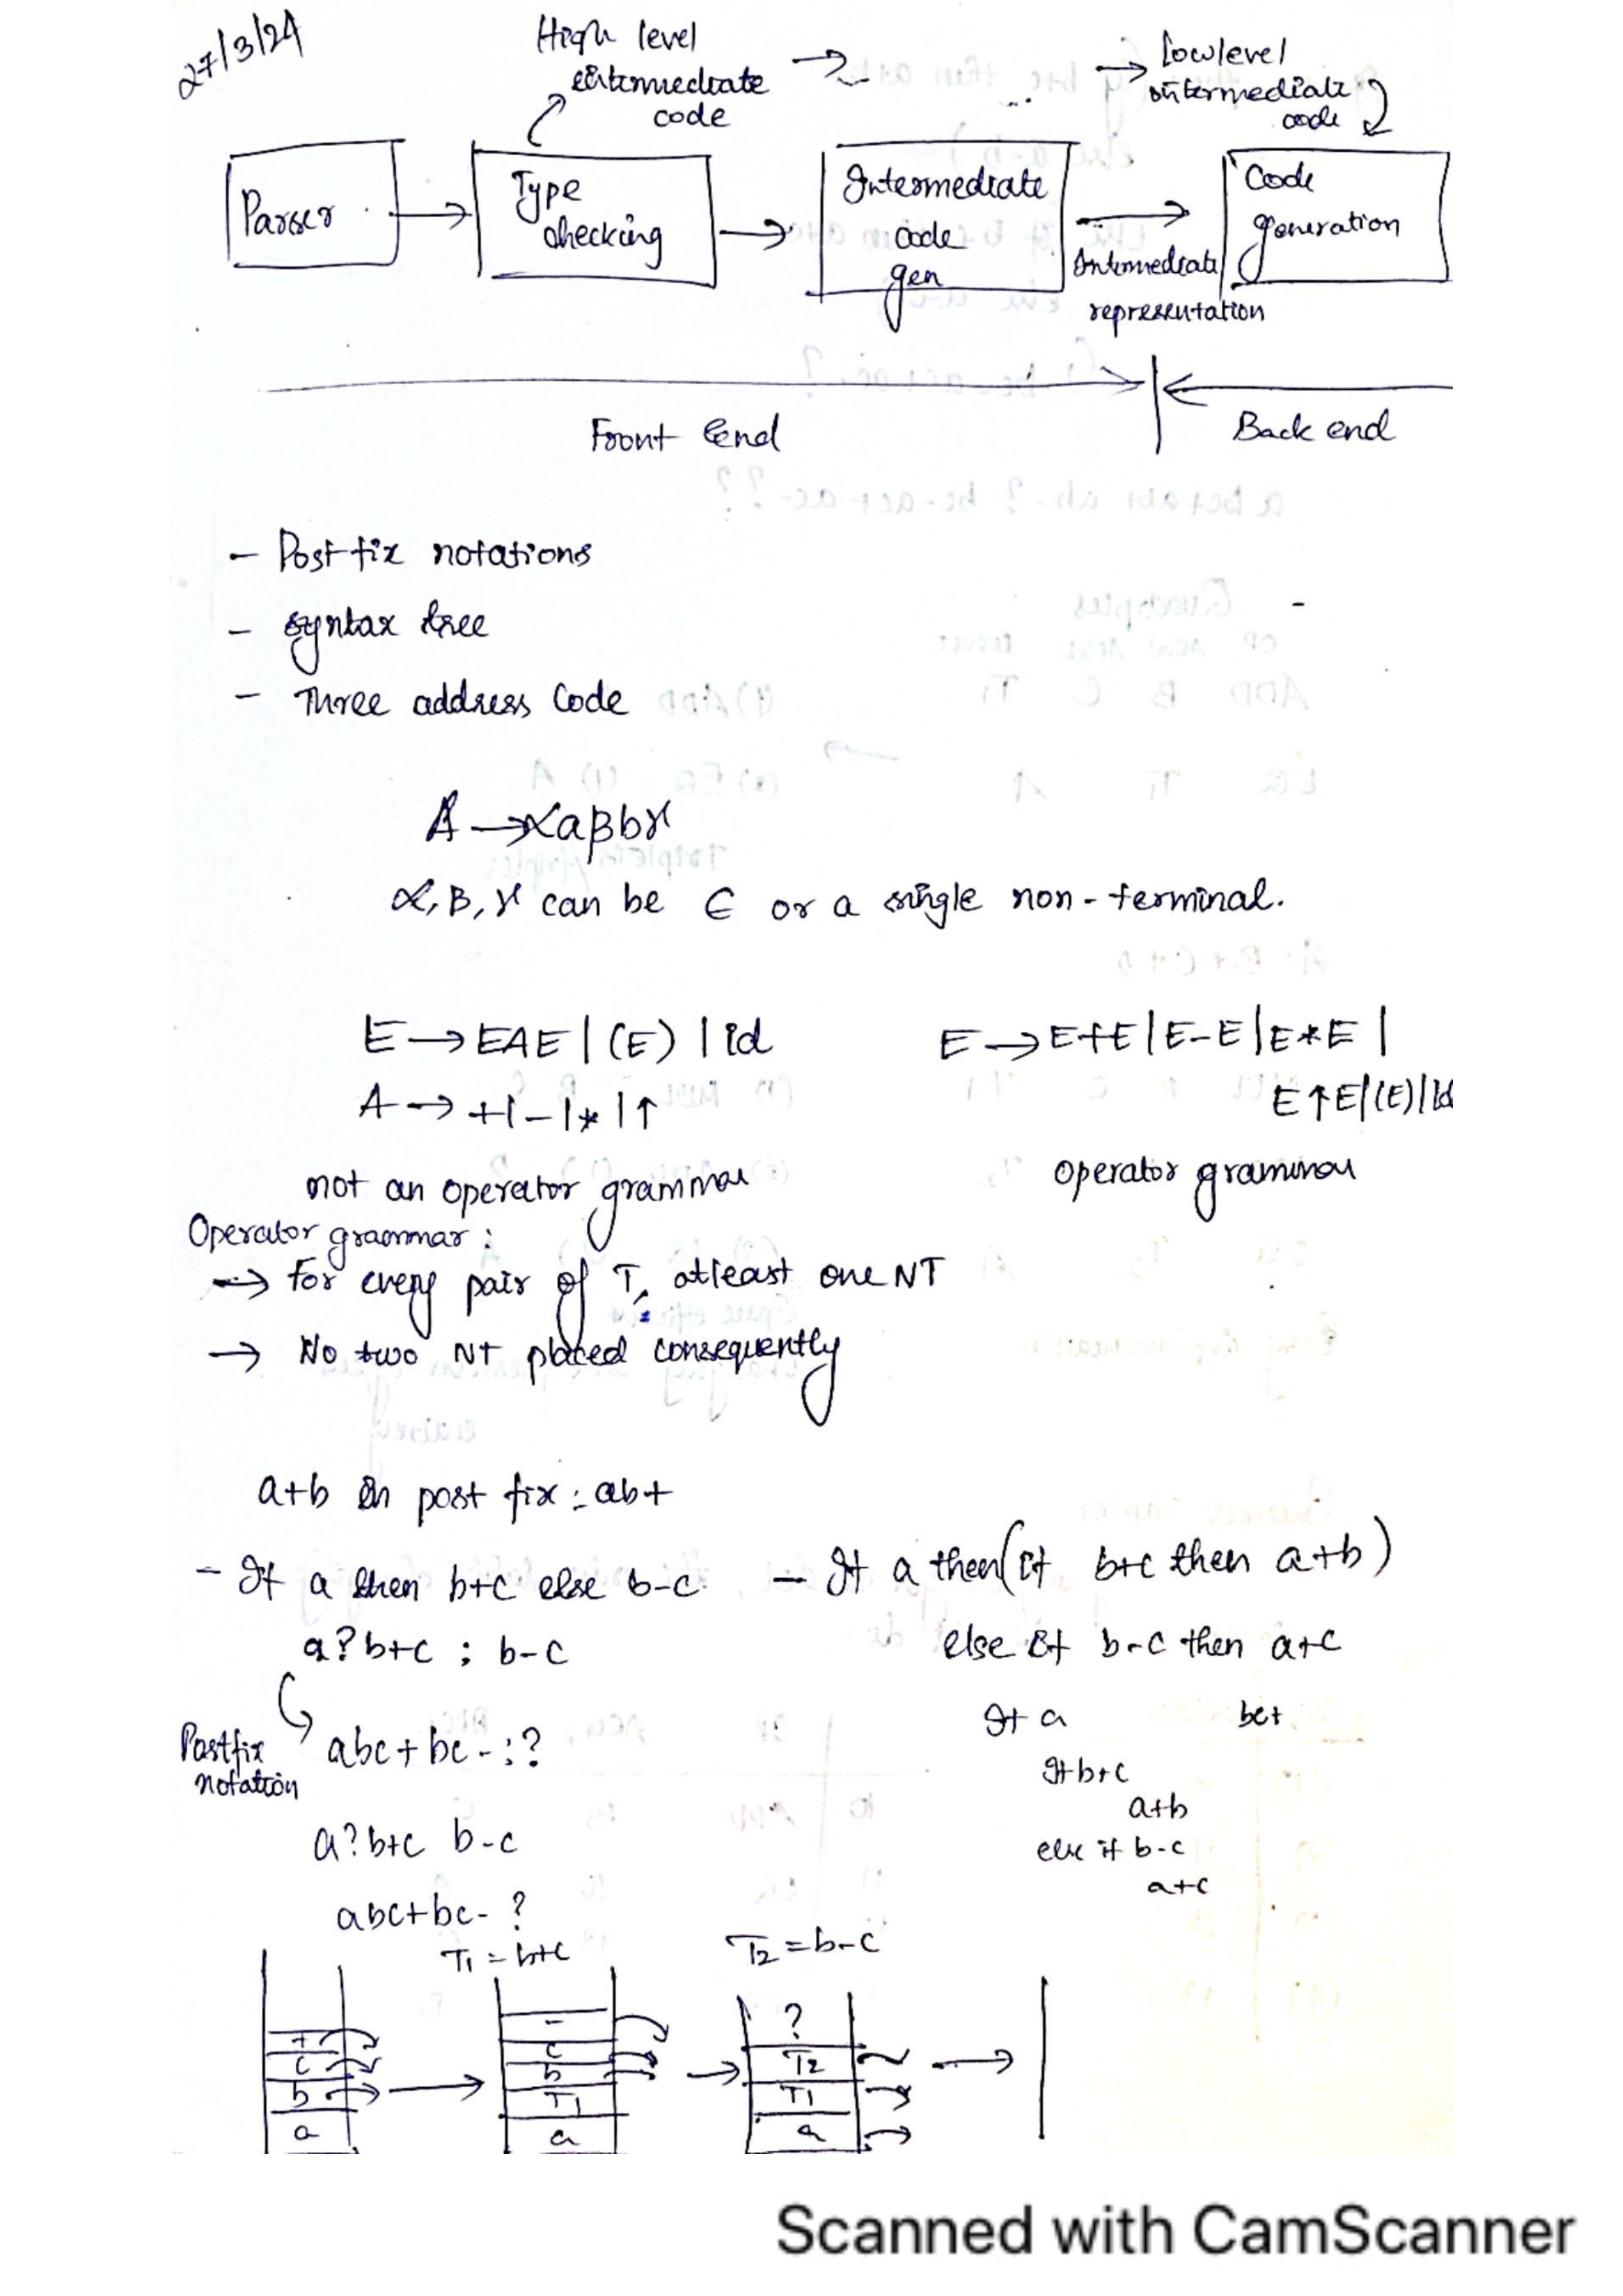 27/3/24
High level
intermediate
code
→
→ Lowlevel
intermediate
code
Parser
Type
checking
Intermediate
code
gen
Intermediate
representation
Code
generation
Front end
Back end
- Postfix notations
- syntax tree
- Three address Code
A → αaβbγ
α, β, γ can be ε or a single non-terminal.
E → EAE | (E) | id
A → +|-|*|↑
not an operator grammar
E → E+E | E-E | E*E |
E↑E|(E)|id
operator grammar
Operator grammar:
→ for every pair of T, atleast one NT
→ No two NT placed consequently
a+b in post fix : ab+
- If a then b+c else b-c
a?b+c : b-c
Postfix
notation
abc+bc-:?
a?b+c b-c
abc+bc-?
- If a then(if b+c then a+b)
else if b-c then a+c
If a bc+
If b+c
a+b
else if b-c
a+c
T1 = b+c
T2 = b-c
+
c
b
a
-
c
b
T1
a
?
T2
T1
a
Scanned with CamScanner